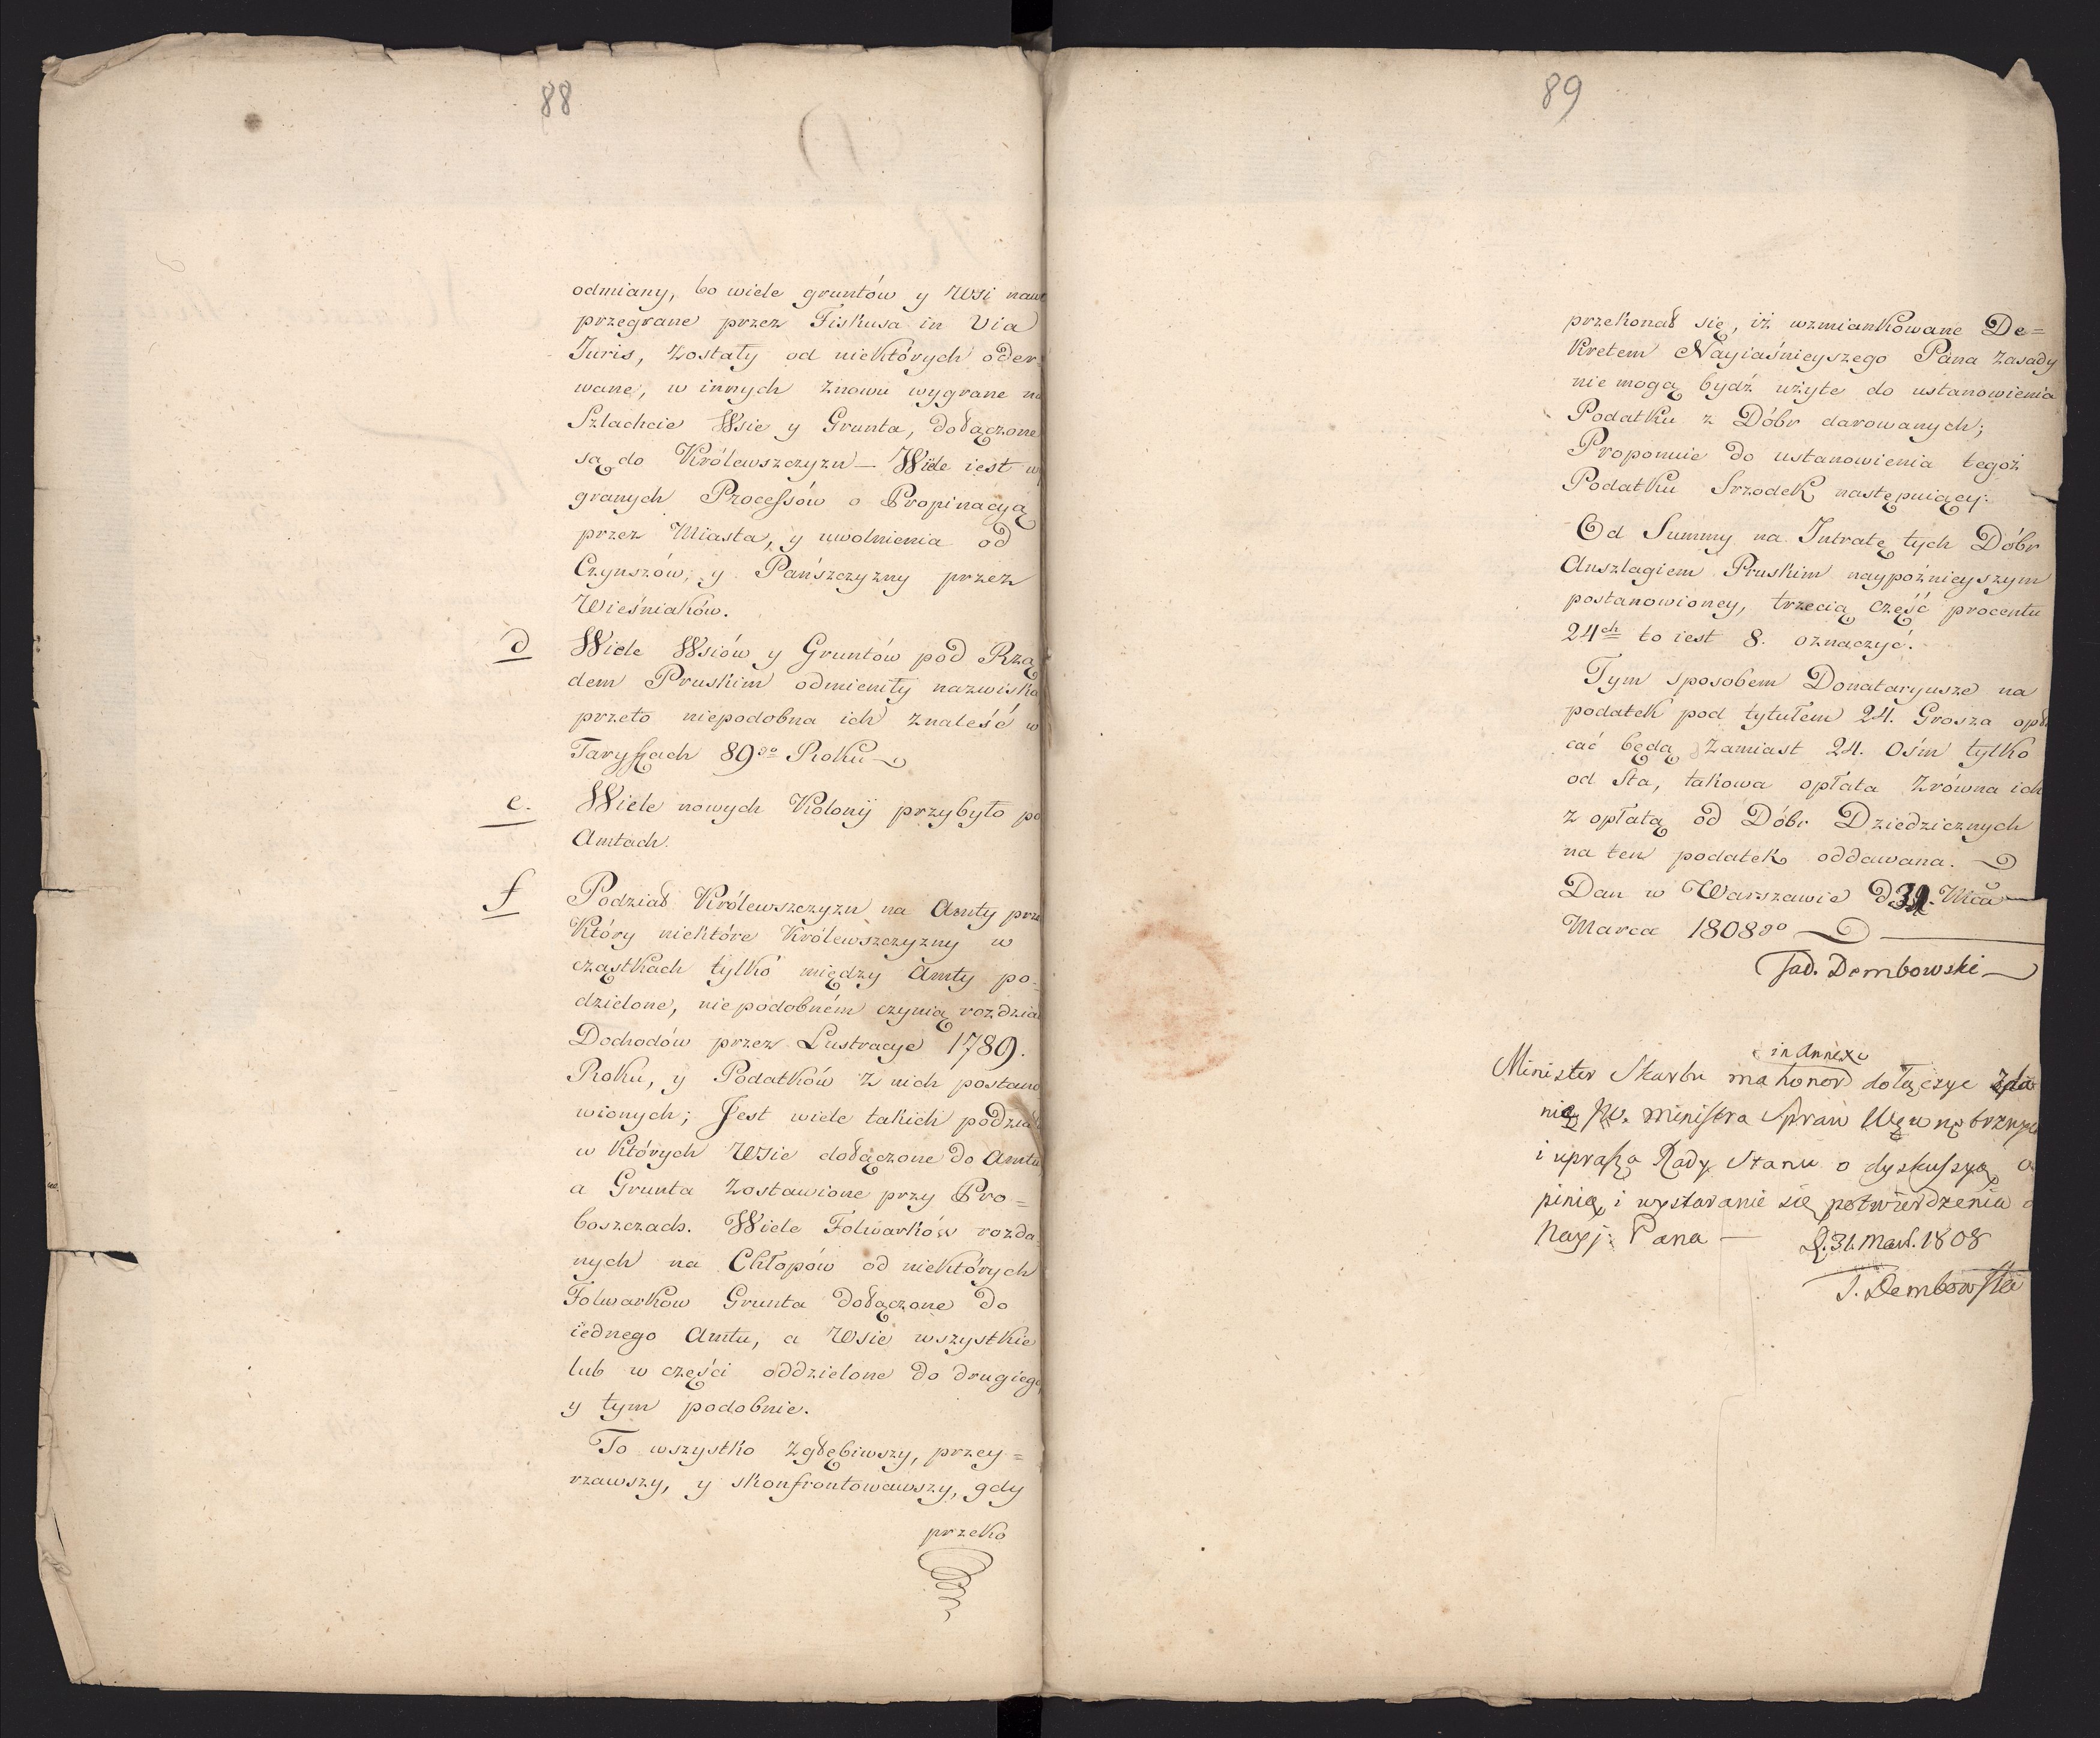 88
odmiany, bo wiele gruntów y Wsi
przegrane przez Fiskusa in Via
Juris, zostały od niektórych oder=
wane, w innych znowu wygrane na
Szlachcie Wsie y Grunta, dołączone
są do Królewszczyzn — Wiele iest wy
granych Processów o Propinacyą
przez Miasta, y uwolnienia od
Czynszów, y Pańszczyzny przez
Wieśniaków.
d Wiele Wsiów y Gruntów pod Rzą
dem Pruskim odmieniły nazwiska
przeto niepodobna ich znaleść w
Taryffach 89go Roku
e. Wiele nowych Kolonij przybyło po
Amtach.
f Podział Królewszczyzn na Amty prze
Który niektóre Królewszczyzny w
cząstkach tylko między Amty po=
dzielone, niepodobném czynią rozdział
Dochodów przez Lustracye 1789.
Roku, y Podatków z nich postano
wionych; Jest wiele takich podział
w których Wsie dołączone do Amtu
a Grunta zostawione przy Pro=
boszczach. Wiele Folwarków rozda=
nych na Chłopów od niektórych
Folwarkow Grunta dołączone do
iednego Amtu, a Wsie wszystkie
lub w części oddzielone do drugiego
y tym podobnie.
To wszystko zgłębiwszy, przey=
rzawszy, y skonfrontowawszy, gdy
przeko
89
przekonał się, iż wzmiankowane De=
kretem Nayiaśnieyszego Pana zasady
nie mogą bydź użyte do ustanowienia
Podatku z Dóbr darowanych;
Proponuie do ustanowienia tegoż
Podatku Srzodek następuiący:
Od Summy na Intratę tych Dóbr
Anszlagiem Pruskim naypoźnieyszym
postanowioney, trzecią część procentu
24ch to iest 8. oznaczyć.
Tym sposobem Donataryusze na
podatek pod tytułem 24. Grosza opła
cać będą zamiast 24. Ośm tylko
od Sta, takowa opłata zrówna ich
z opłatą od Dóbr Dziedzicznych
na ten podatek oddawana.
Dan w Warszawie d 31. Mca
Marca 1808go
Tad. Dembowski
in Annexo
Minister Skarbu ma honor dołączyc zda
nie JW. Ministra Spraw Wewnętrznych
i uprasza Rady Stanu o dyskussyą o
pinią i wystaranie się potwierdzenia
Nayj: Pana — D. 31. Mart. 1808
T. Dembowski